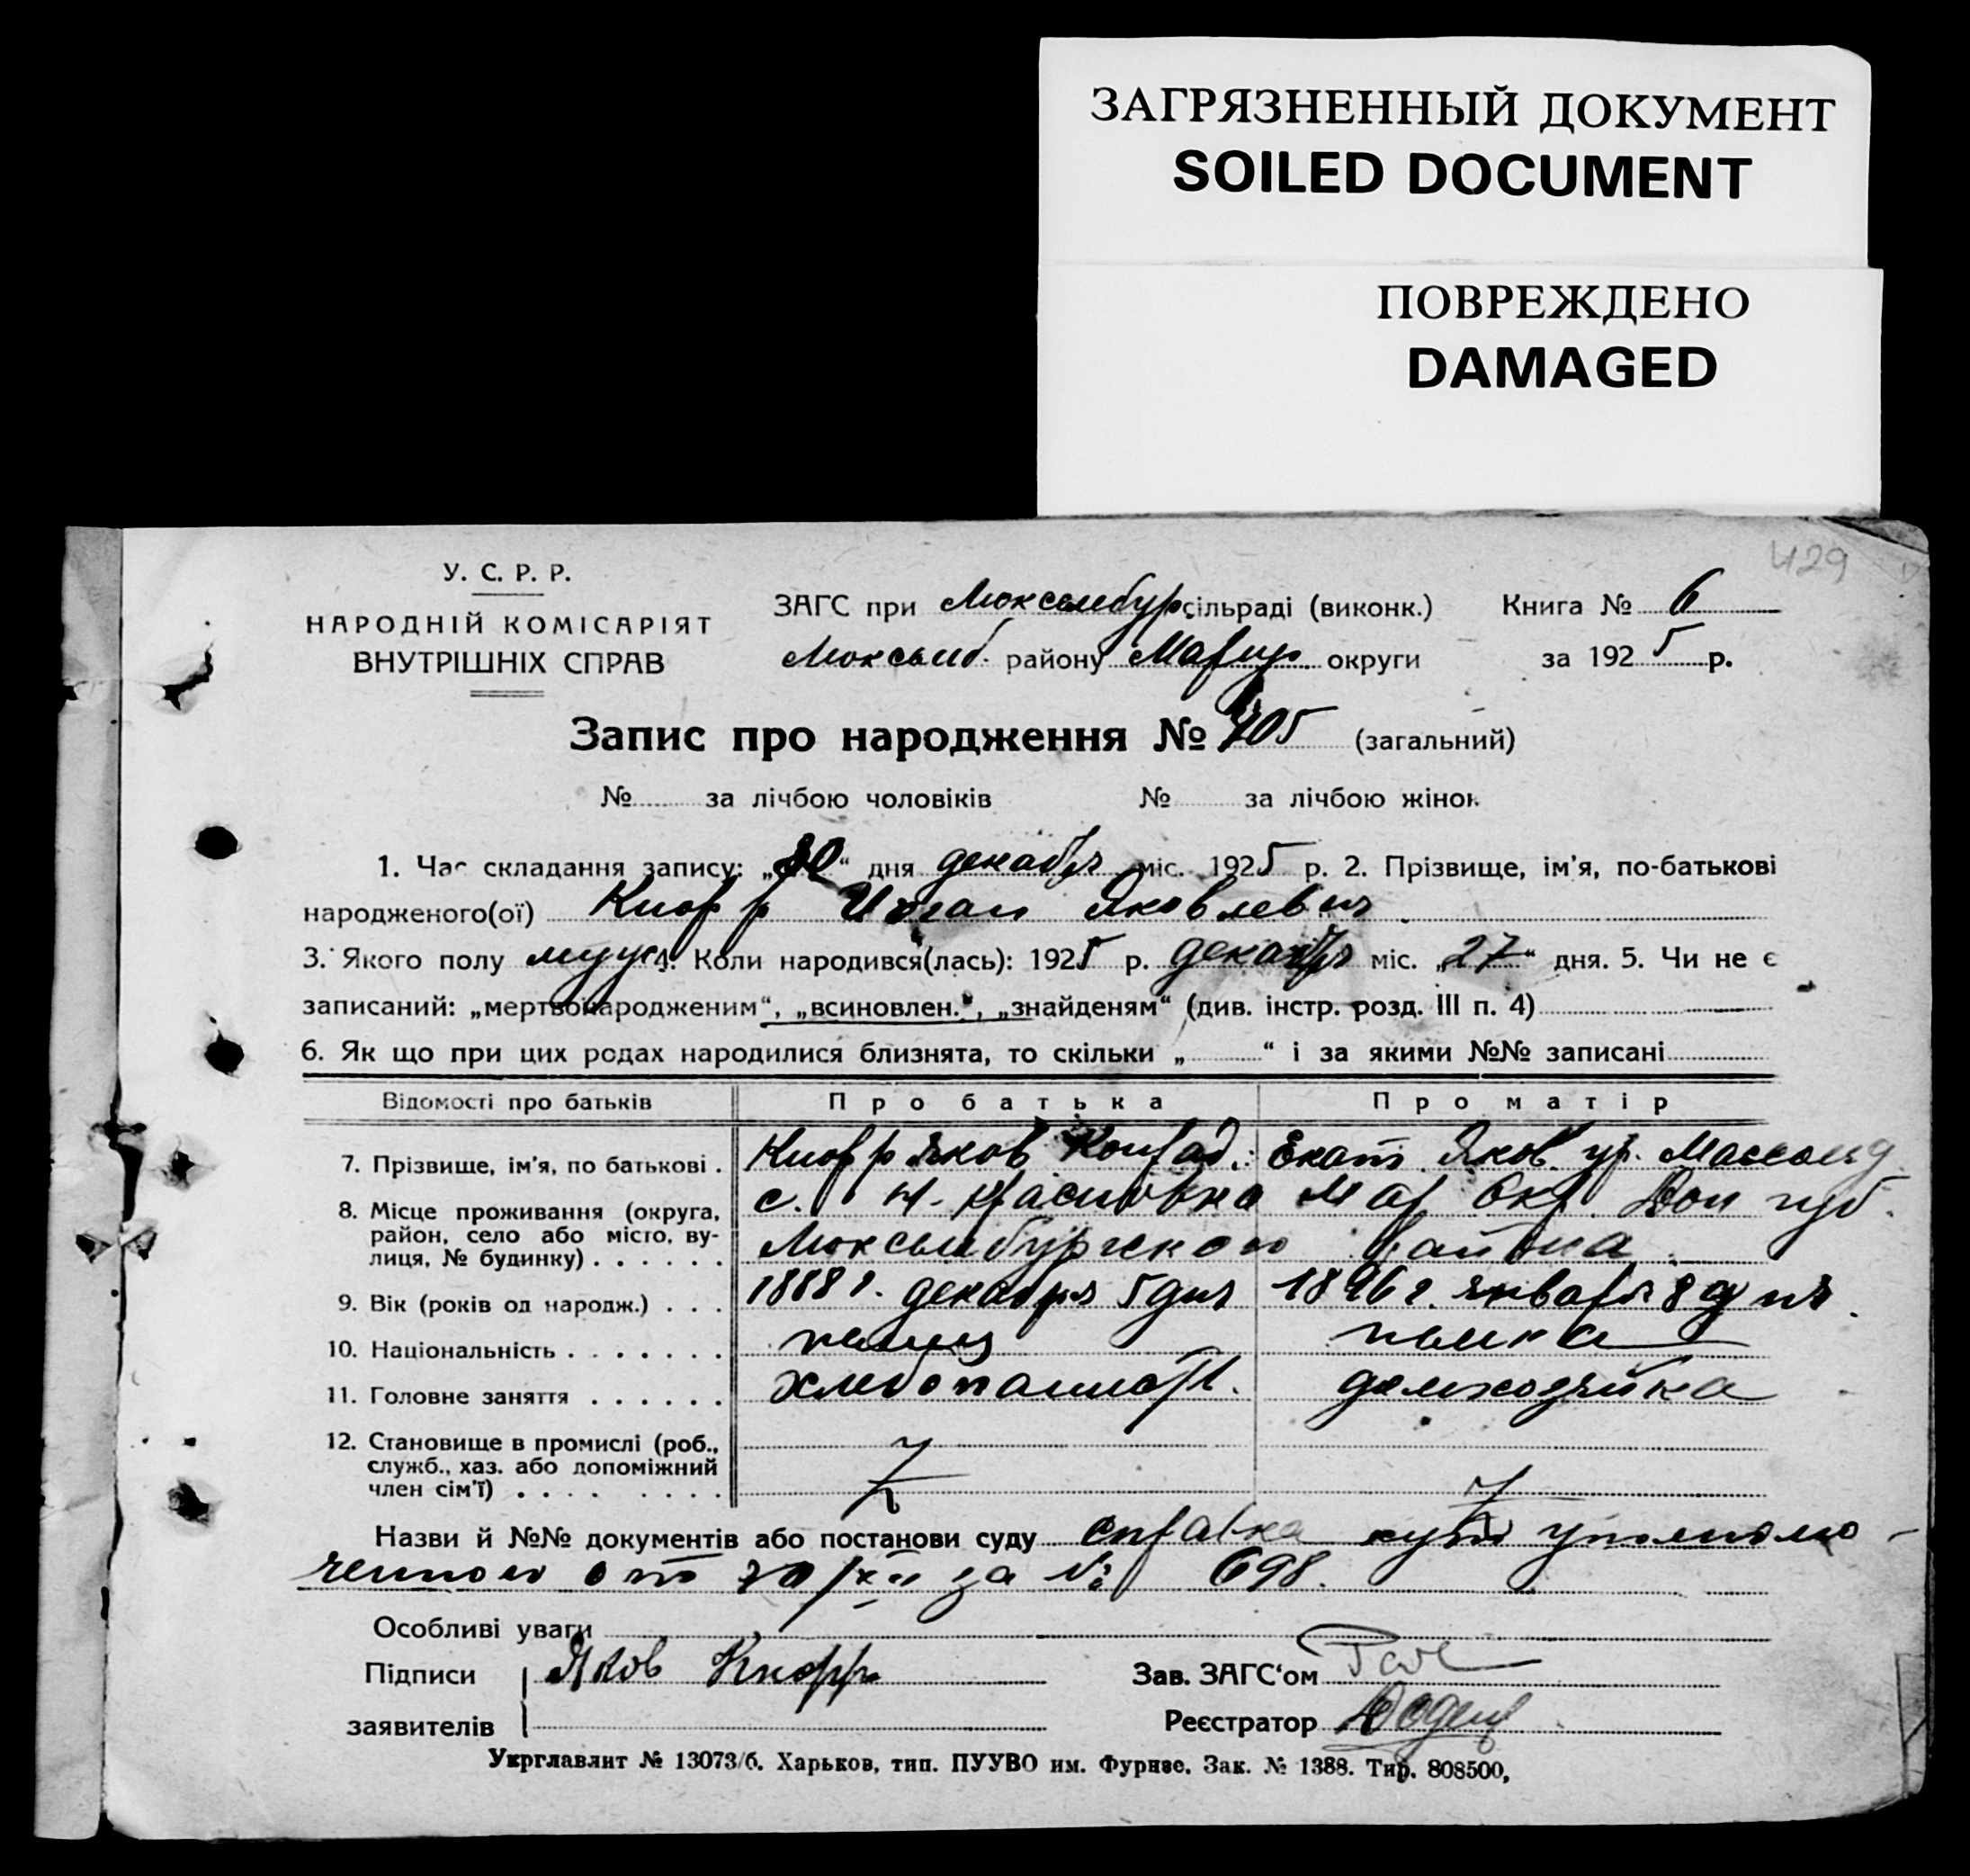 ЗАГРЯЗНЕННЫЙ ДОКУМЕНТ
SOILED DOCUMENT
ПОВРЕЖДЕНО
DAMAGED
429
У. С. Р. Р.
НАРОДНІЙ КОМІСАРІЯТ
ВНУТРІШНІХ СПРАВ
ЗАГС при Люксембур сільраді (виконк.) Книга № 6
Люксемб. району Мариуп округи за 1925 р.
Запис про народження № 705 (загальний)
№ за лічбою чоловіків № за лічбою жінок
1. Час складання запису: „30“ дня декабря міс. 1925 р. 2. Прізвище, ім'я, по-батькові
народженого(ої) Кнорр Иоган Яковлевич
3. Якого полу муж 4. Коли народився(лась): 1925 р. декабря міс. „27“ дня. 5. Чи не є
записаний: „мертвонародженим“, „всиновлен.“, „знайденям“ (див. інстр. розд. III п. 4)
6. Як що при цих родах народилися близнята, то скільки „ “ і за якими №№ записані
Відомості про батьків Про батька Про матір
7. Прізвище, ім'я, по батькові . Кнорр Яков Конрад. Екат. Яков. ур.
8. Місце проживання (округа, район, село або місто, вулиця, № будинку) . . . . . . с. Н-Красновка Мар окр. Дон губ.
Люксембургского района
9. Вік (років од народж.) . . . 1888 г. декабря 5 дня 1896 г. января 8 дня
10. Національність . . . . . . . немец немка
11. Головне заняття . . . . . . хлебопашест. домхозяйка
12. Становище в промислі (роб., служб., хаз. або допоміжний член сім'ї) . . . . . . . .
Назви й №№ документів або постанови суду справка уполномо-
ченного от 30/XII за № 698.
Особливі уваги
Підписи Яков Кнорр Зав. ЗАГС'ом
заявителів Реєстратор
Укрглавлит № 13073/б. Харьков, тип. ПУУВО им. Фрунзе. Зак. № 1388. Тир. 808500,